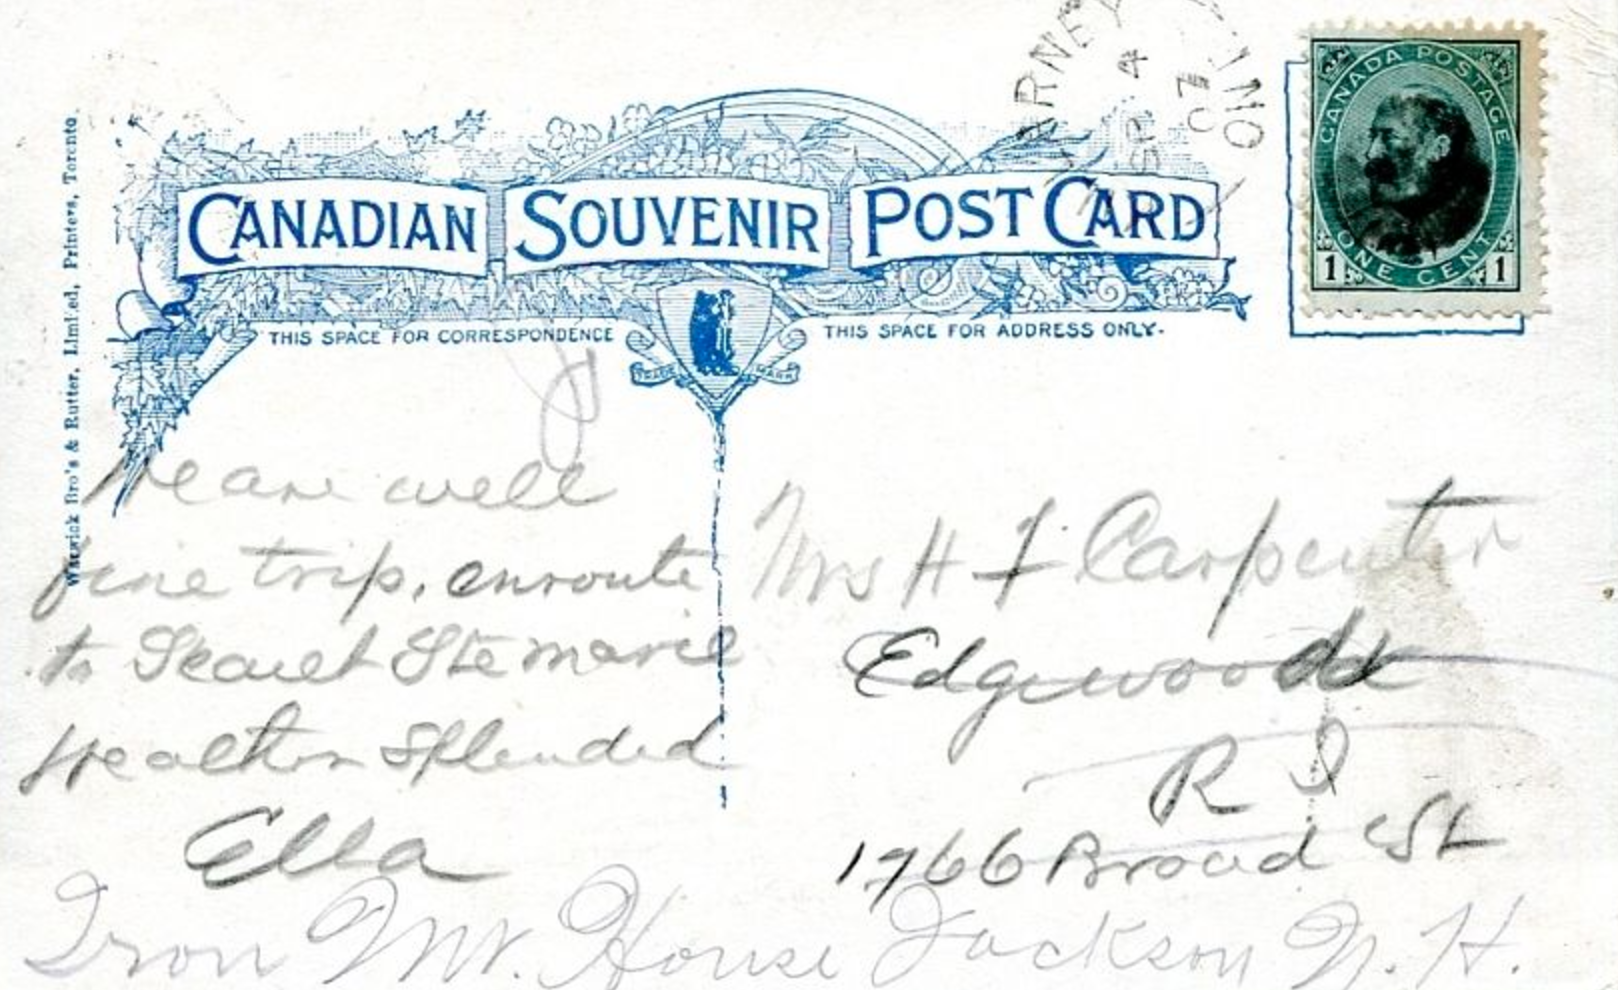 ARNEY
SP 4
07
ONT
CANADA POSTAGE
ONE CENT
1 1
CANADIAN SOUVENIR POST CARD
THIS SPACE FOR CORRESPONDENCE
THIS SPACE FOR ADDRESS ONLY.
TRADE MARK
Warwick Bro's & Rutter, Limited, Printers, Toronto.
We are well
fine trip, enroute
to Stemarie
Health Splended
Ella
Mrs H F Carpenter
Edgewood
R I
1766 Broad St
Iron Mt. House Jackson N. H.